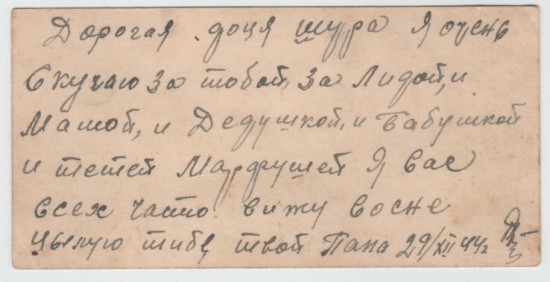 Дорогая доця шура я очень
Скучаю за тобой, за Лидой, и
Машой, и Дедушкой, и Бабушкой
и тетей Марфушей Я вас
всех часто вижу восне
цылую тибе твой Папа 29/XII 44г